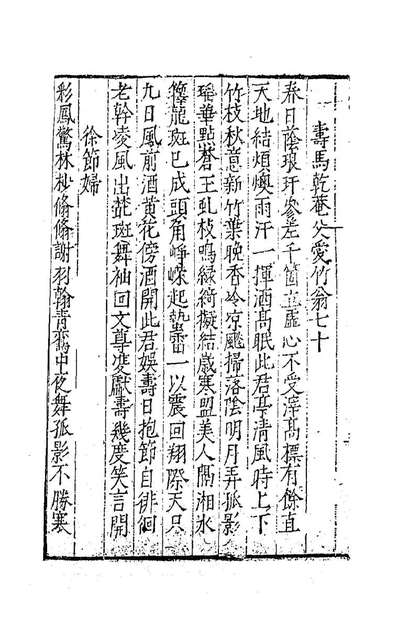 壽馬乾菴父愛竹翁七十
春日蔭琅玕參差千箇直虛心不受滓髙標有餘直
天地結煩燠雨汗一揮洒髙眠此君亭清風時上下
竹枝秋意新竹葉晚香冷凉飈掃落陰明月弄孤影
瑶華點蒼玉虬枝鳴緑綺擬結歳寒盟美人隔湘水
籜龍斑已成頭角崢嶸起蟄雷一以震回翔際天只
九日風前酒黄花傍酒開此君娱壽日抱節自徘徊
老幹凌風出斑舞袖回文尊雙獻壽幾度笑言開
徐節婦
彩鳳驚林杪翛翛謝羽翰青鸞中夜舞孤影不勝寒